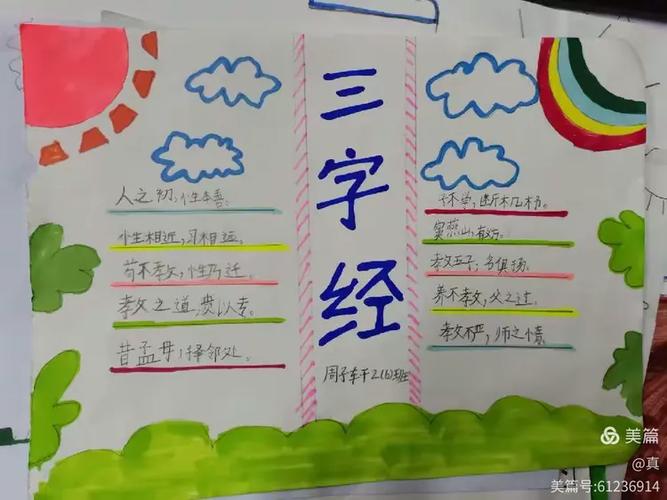 三字经
人之初,性本善。
性相近,习相远。
苟不教,性乃迁。
教之道,贵以专。
昔孟母,择邻处。
子不学,断机杼。
窦燕山,有义方。
教五子,名俱扬。
养不教,父之过。
教不严,师之惰。
周子轩 2(6)班
美篇
@真
美篇号:61236914